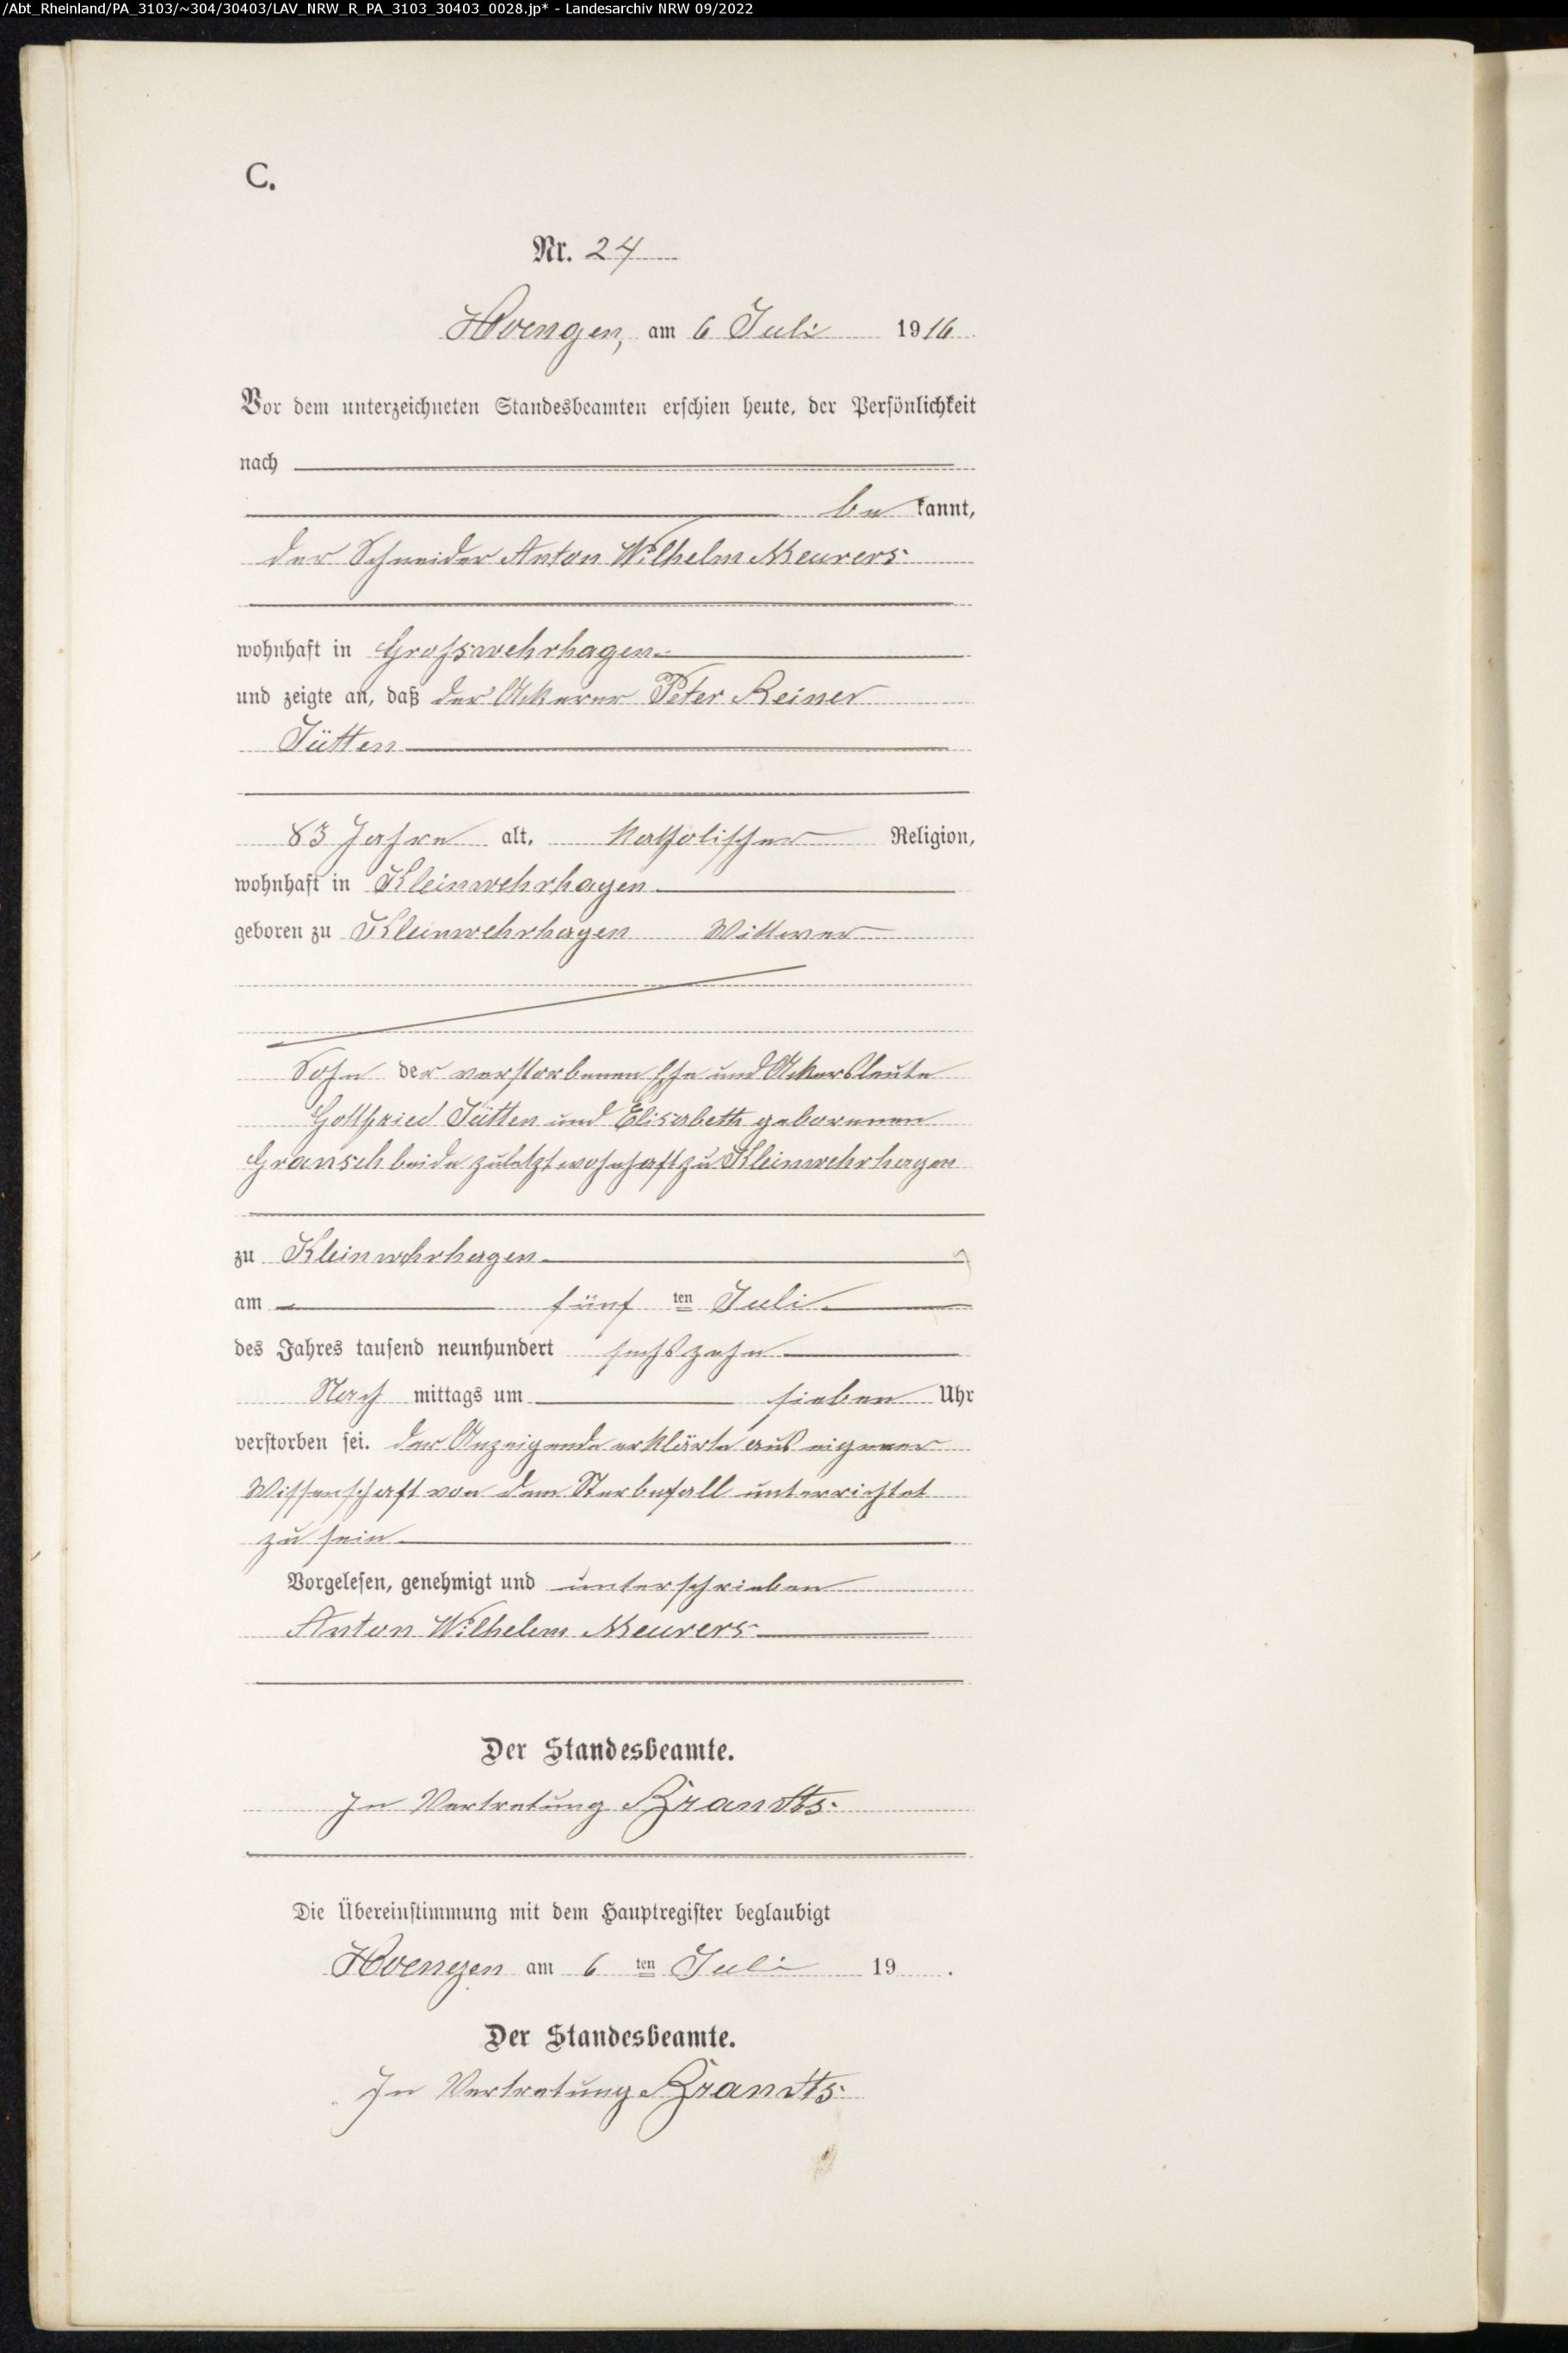 /Abt_Rheinland/PA_3103/~304/30403/LAV_NRW_R_PA_3103_30403_0028.jp* - Landesarchiv NRW 09/2022
C.
Nr. 24
Hoengen, am 6 Juli 1916
Vor dem unterzeichneten Standesbeamten erschien heute, der Persönlichkeit
nach
be kannt,
der Schneider Anton Wilhelm Meurers
wohnhaft in Grosswehrhagen
und zeigte an, daß der Ackerer Peter Reiner
Jütten
83 Jahre alt, katholischer Religion,
wohnhaft in Kleinwehrhagen
geboren zu Kleinwehrhagen Wittwer
Sohn der verstorbenen Ehe und Ackersleute
Gottfried Jütten und Elisabeth geborenen
Gransch beide zuletzt wohnhaft zu Kleinwehrhagen
zu Kleinwehrhagen
am fünf ten Juli
des Jahres tausend neunhundert sechszehn
Nach mittags um sieben Uhr
verstorben sei. Der Anzeigende erklärte aus eigener
Wissenschaft von dem Sterbefall unterrichtet
zu sein
Vorgelesen, genehmigt und unterschrieben
Anton Wilhelm Meurers
Der Standesbeamte.
In Vertretung Brandts
Die Übereinstimmung mit dem Hauptregister beglaubigt
Hoengen am 6 ten Juli 19 .
Der Standesbeamte.
In Vertretung Brandts